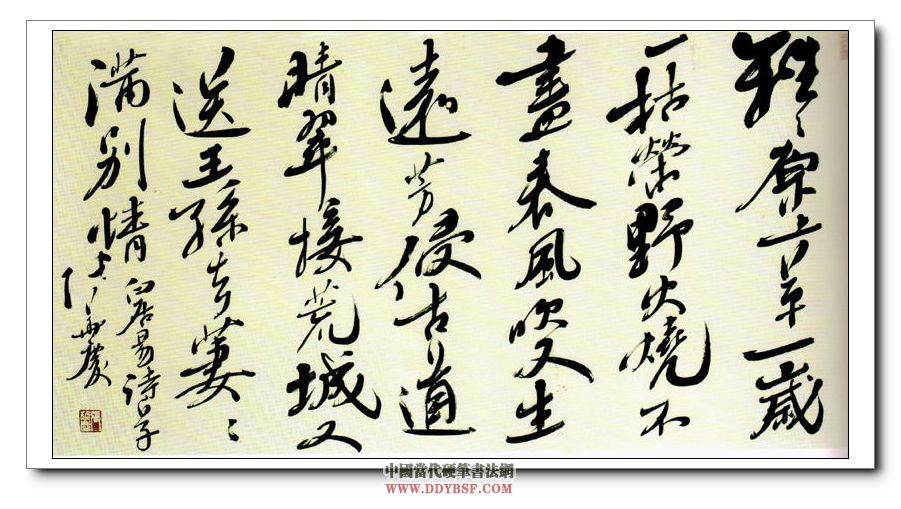 離々原上草一歲
一枯榮野火燒不
盡春風吹又生
遠芳侵古道
晴翠接荒城又
送王孫去萋々
滿別情
白居易詩
中國當代硬筆書法網
WWW.DDYBSF.COM